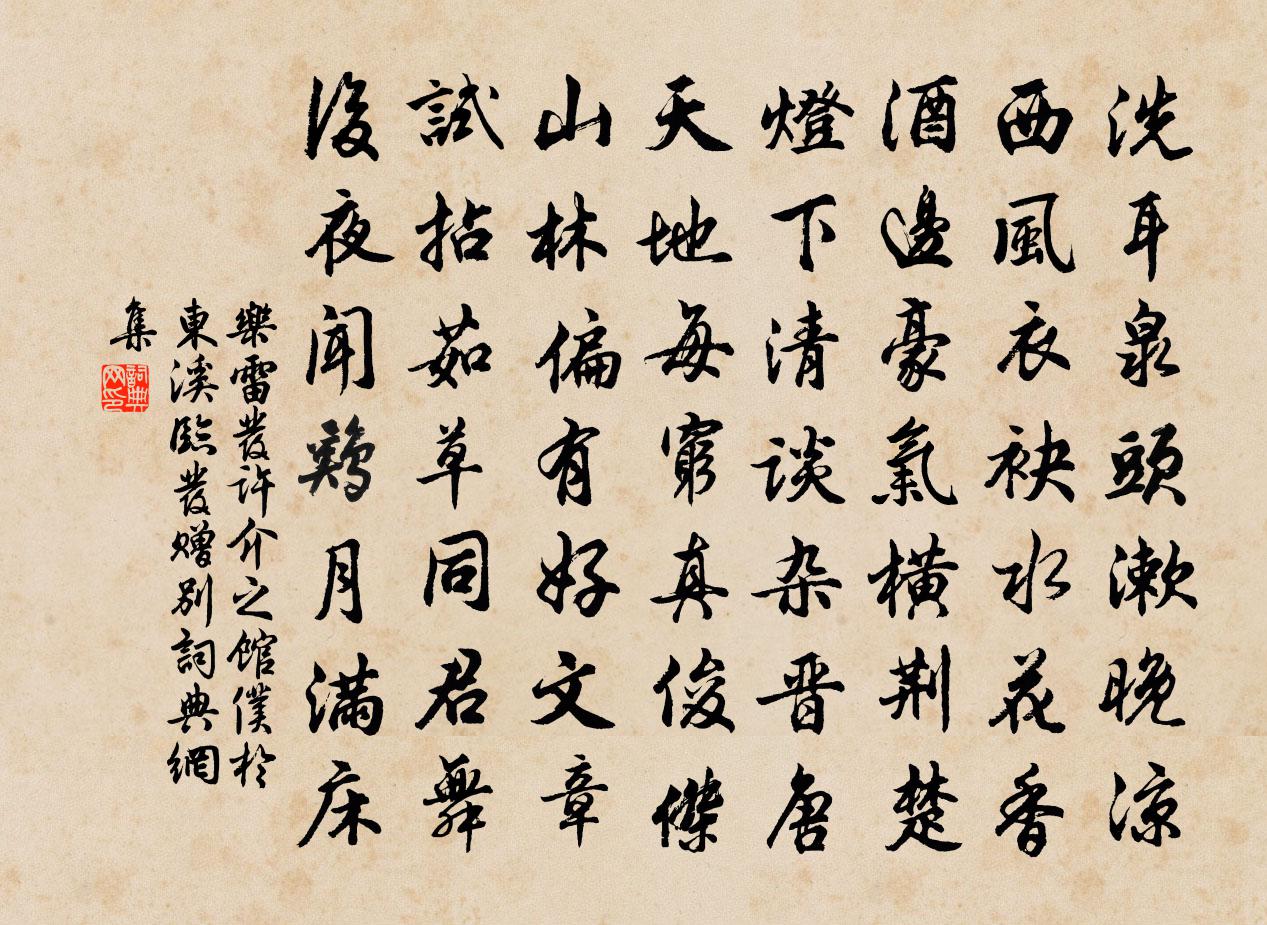 洗耳泉頭漱晚涼
西風衣袂水花香
酒邊豪氣橫荆楚
燈下清談杂晋唐
天地每窮真俊傑
山林偏有好文章
試拈茹草同君舞
後夜聞鷄月滿床
樂雷發許介之館僕於
東溪臨發贈別詞典網
集
詞典网印